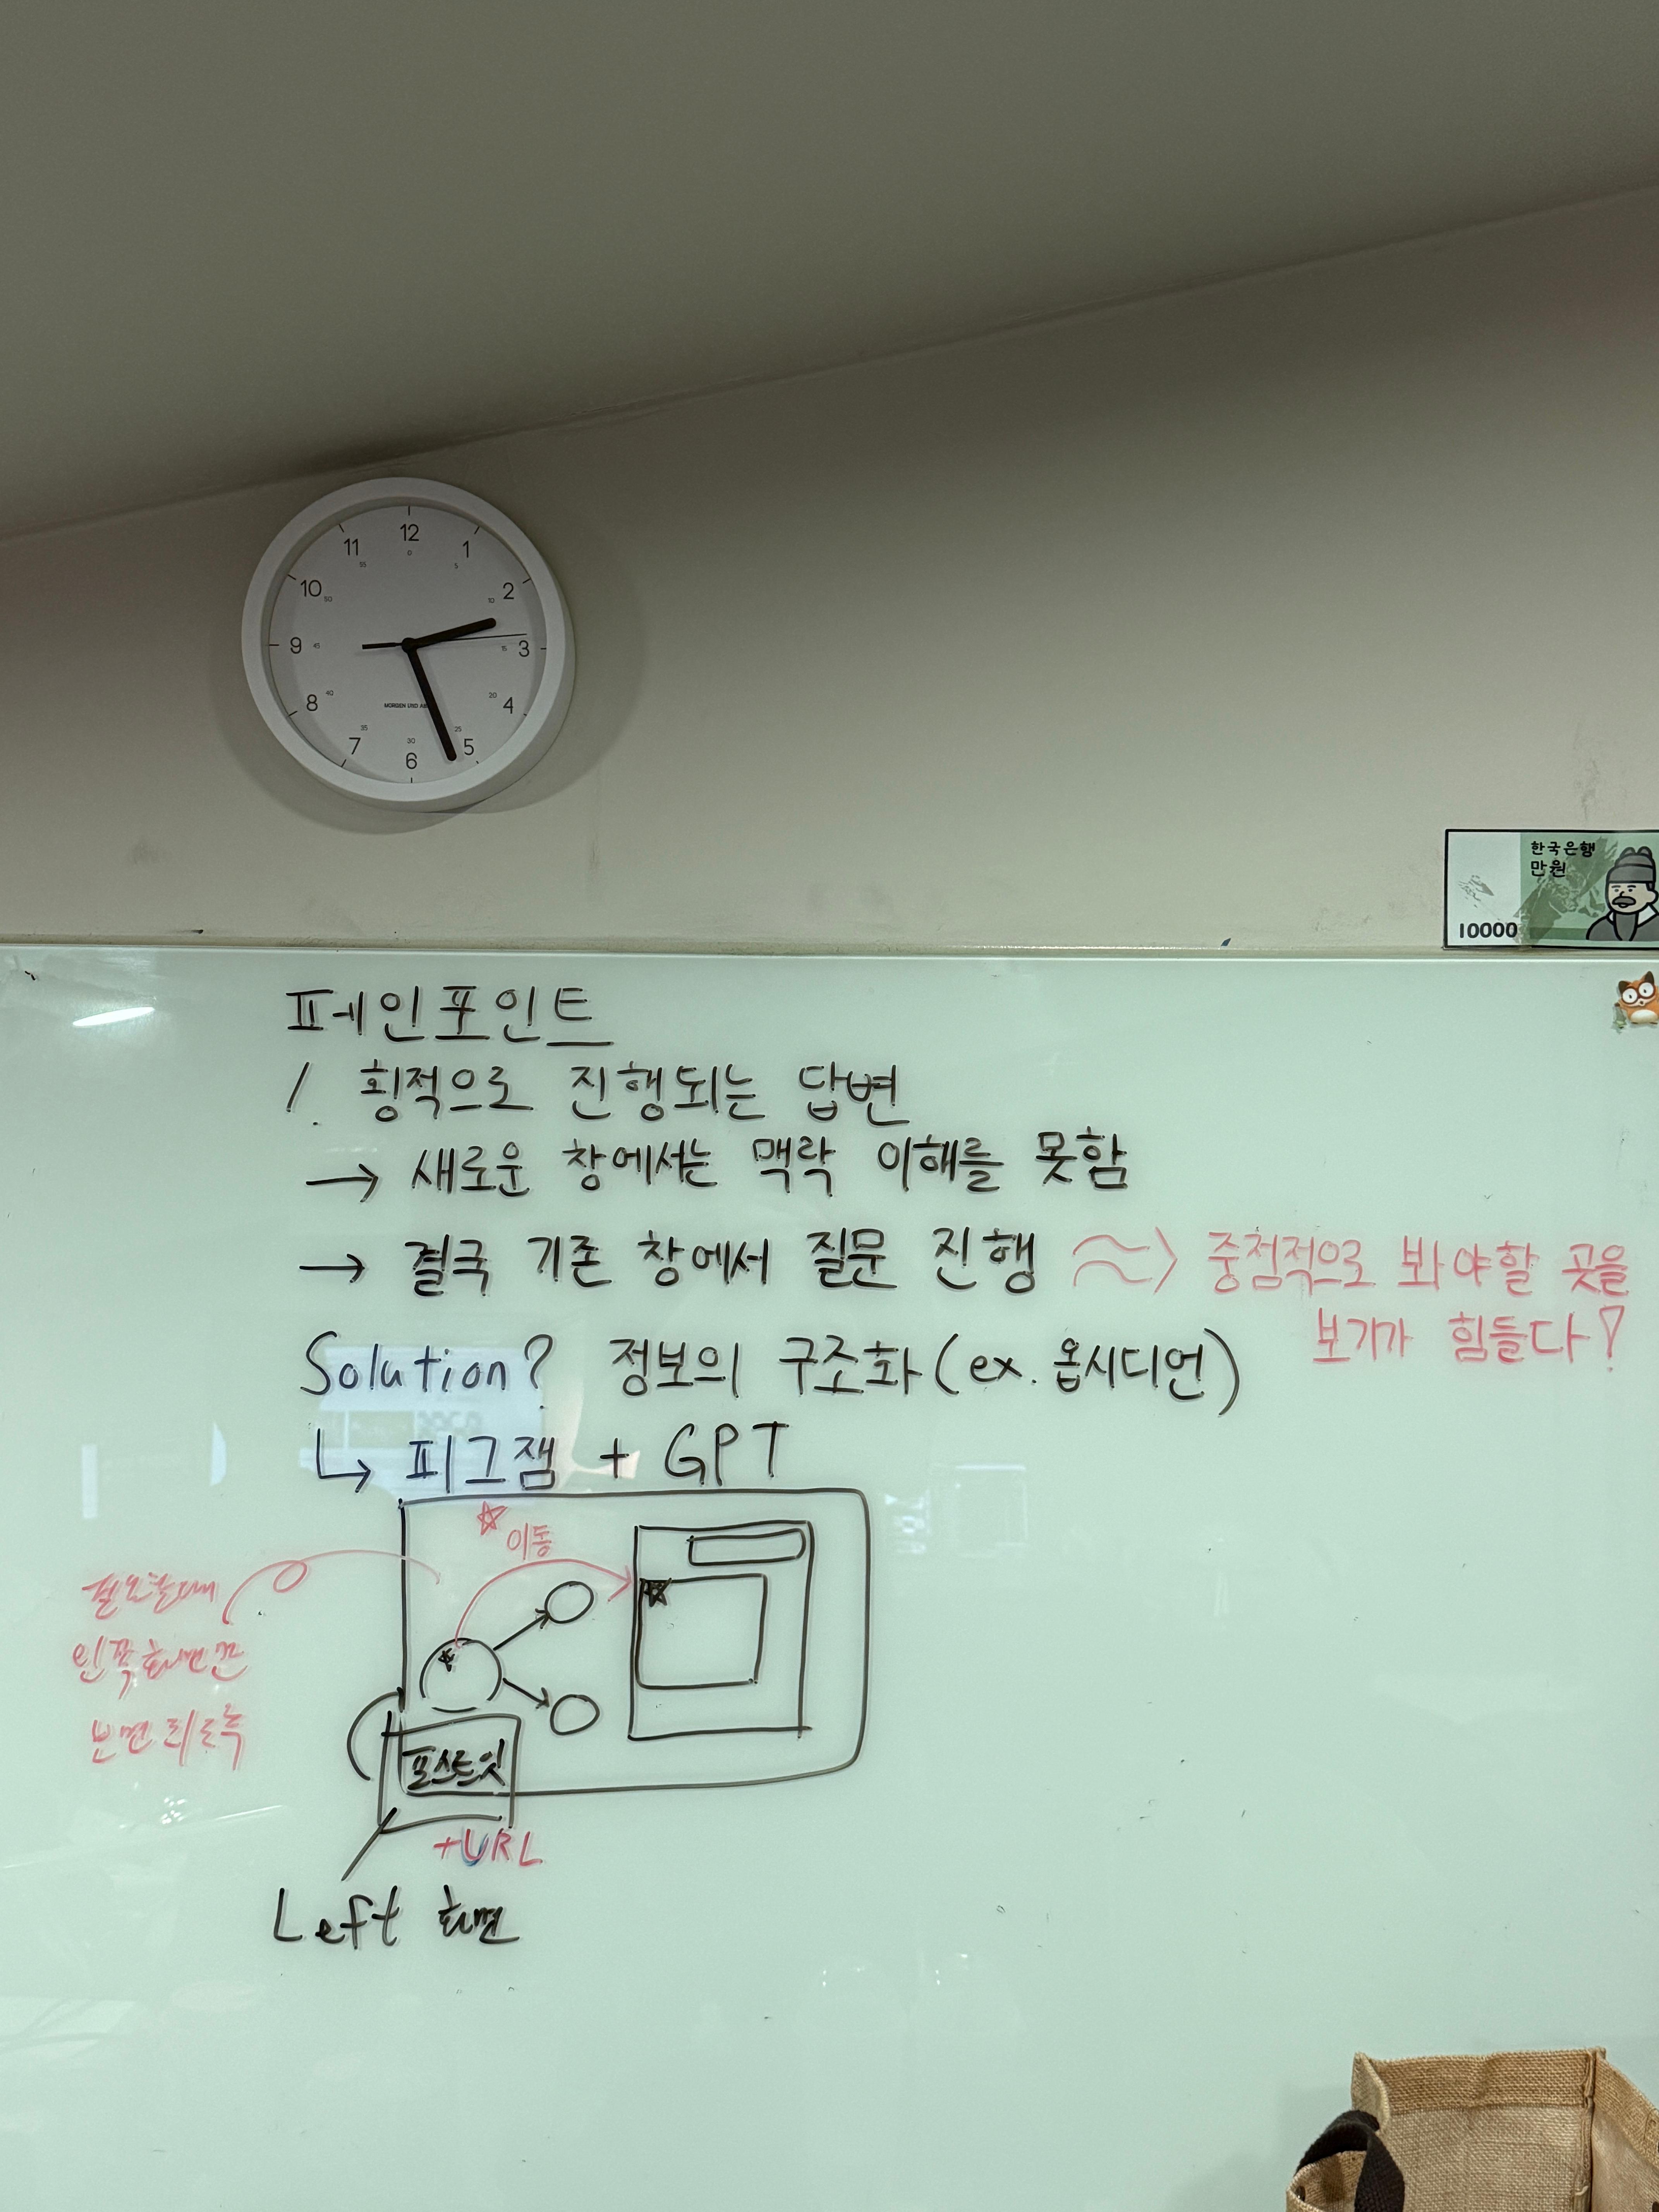 12
11
1
10
2
9
3
8
4
7
5
6
0
55
5
50
10
45
15
40
20
35
25
30
한국은행
만원
10000
페인포인트
1. 횡적으로 진행되는 답변
→ 새로운 창에서는 맥락 이해를 못함
→ 결국 기존 창에서 질문 진행 ⇒ 중점적으로 봐야할 곳을
보기가 힘들다?
Solution? 정보의 구조화 (ex. 옵시디언)
↳ 피그잼 + GPT
이동
필요할때
왼쪽화면만
보면 되도록
포스트잇
+URL
Left 화면